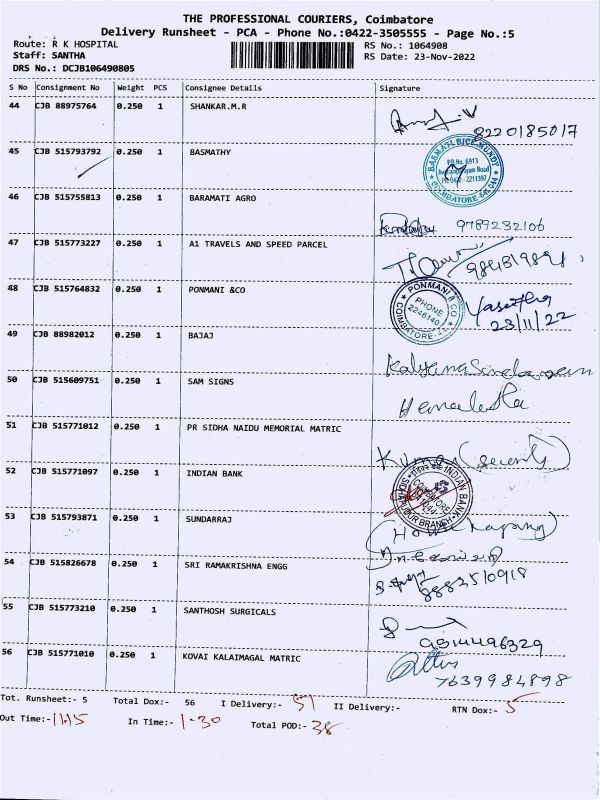 THE PROFESSIONAL COURIERS, Coimbatore
Delivery Runsheet - PCA - Phone No.:0422-3505555 - Page No.:5
Route: R K HOSPITAL RS No.: 1064908
Staff: SANTHA RS Date: 23-Nov-2022
DRS No.: DCJB106490805
S No Consignment No Weight PCS Consignee Details Signature
44 CJB 88975764 0.250 1 SHANKAR.M.R
8220185017
45 CJB 515793792 0.250 1 BASMATHY
BASMATI RICE MUNDY
PB No. 6913
COIMBATORE 641 044
46 CJB 515755813 0.250 1 BARAMATI AGRO
9789232106
47 CJB 515773227 0.250 1 A1 TRAVELS AND SPEED PARCEL
48 CJB 515764832 0.250 1 PONMANI &CO
PONMANI & CO
PHONE
2246140
COIMBATORE
23/11/22
49 CJB 88982012 0.250 1 BAJAJ
Kalyana Sundaram
50 CJB 515609751 0.250 1 SAM SIGNS
Hemalatha
51 CJB 515771012 0.250 1 PR SIDHA NAIDU MEMORIAL MATRIC
Kumar (Security)
52 CJB 515771097 0.250 1 INDIAN BANK
INDIAN BANK
COIMBATORE
BRANCH
53 CJB 515793871 0.250 1 SUNDARRAJ
54 CJB 515826678 0.250 1 SRI RAMAKRISHNA ENGG
8883510918
55 CJB 515773210 0.250 1 SANTHOSH SURGICALS
56 CJB 515771010 0.250 1 KOVAI KALAIMAGAL MATRIC
7639984898
Tot. Runsheet:- 5 Total Dox:- 56 I Delivery:- 51 II Delivery:- RTN Dox:- 5
Out Time:- 11.15 In Time:- 1-30 Total POD:- 38